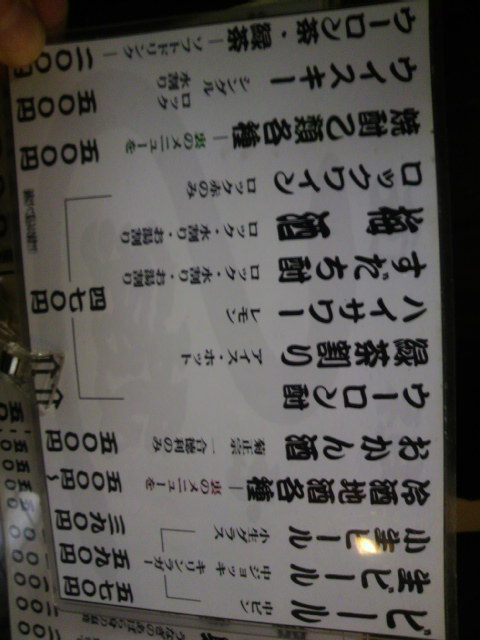 ビール 中ビン 五七〇円
生ビール 中ジョッキ キリンラガー 五九〇円
小生ビール 小生グラス 三九〇円
冷酒地酒各種 裏のメニューを 五〇〇円〜
おかん酒 菊正宗 一合徳利のみ 五〇〇円
ウーロン酎
緑茶割り アイス・ホット
ハイサワー レモン
すだち酎 ロック・水割り・お湯割り
梅酒 ロック・水割り・お湯割り
ロックワイン ロック 赤のみ
四七〇円
焼酎乙類各種 裏のメニューを 五〇〇円
ウイスキー シングル 水割り ロック 五〇〇円
ウーロン茶・緑茶 ソフトドリンク 二〇〇円